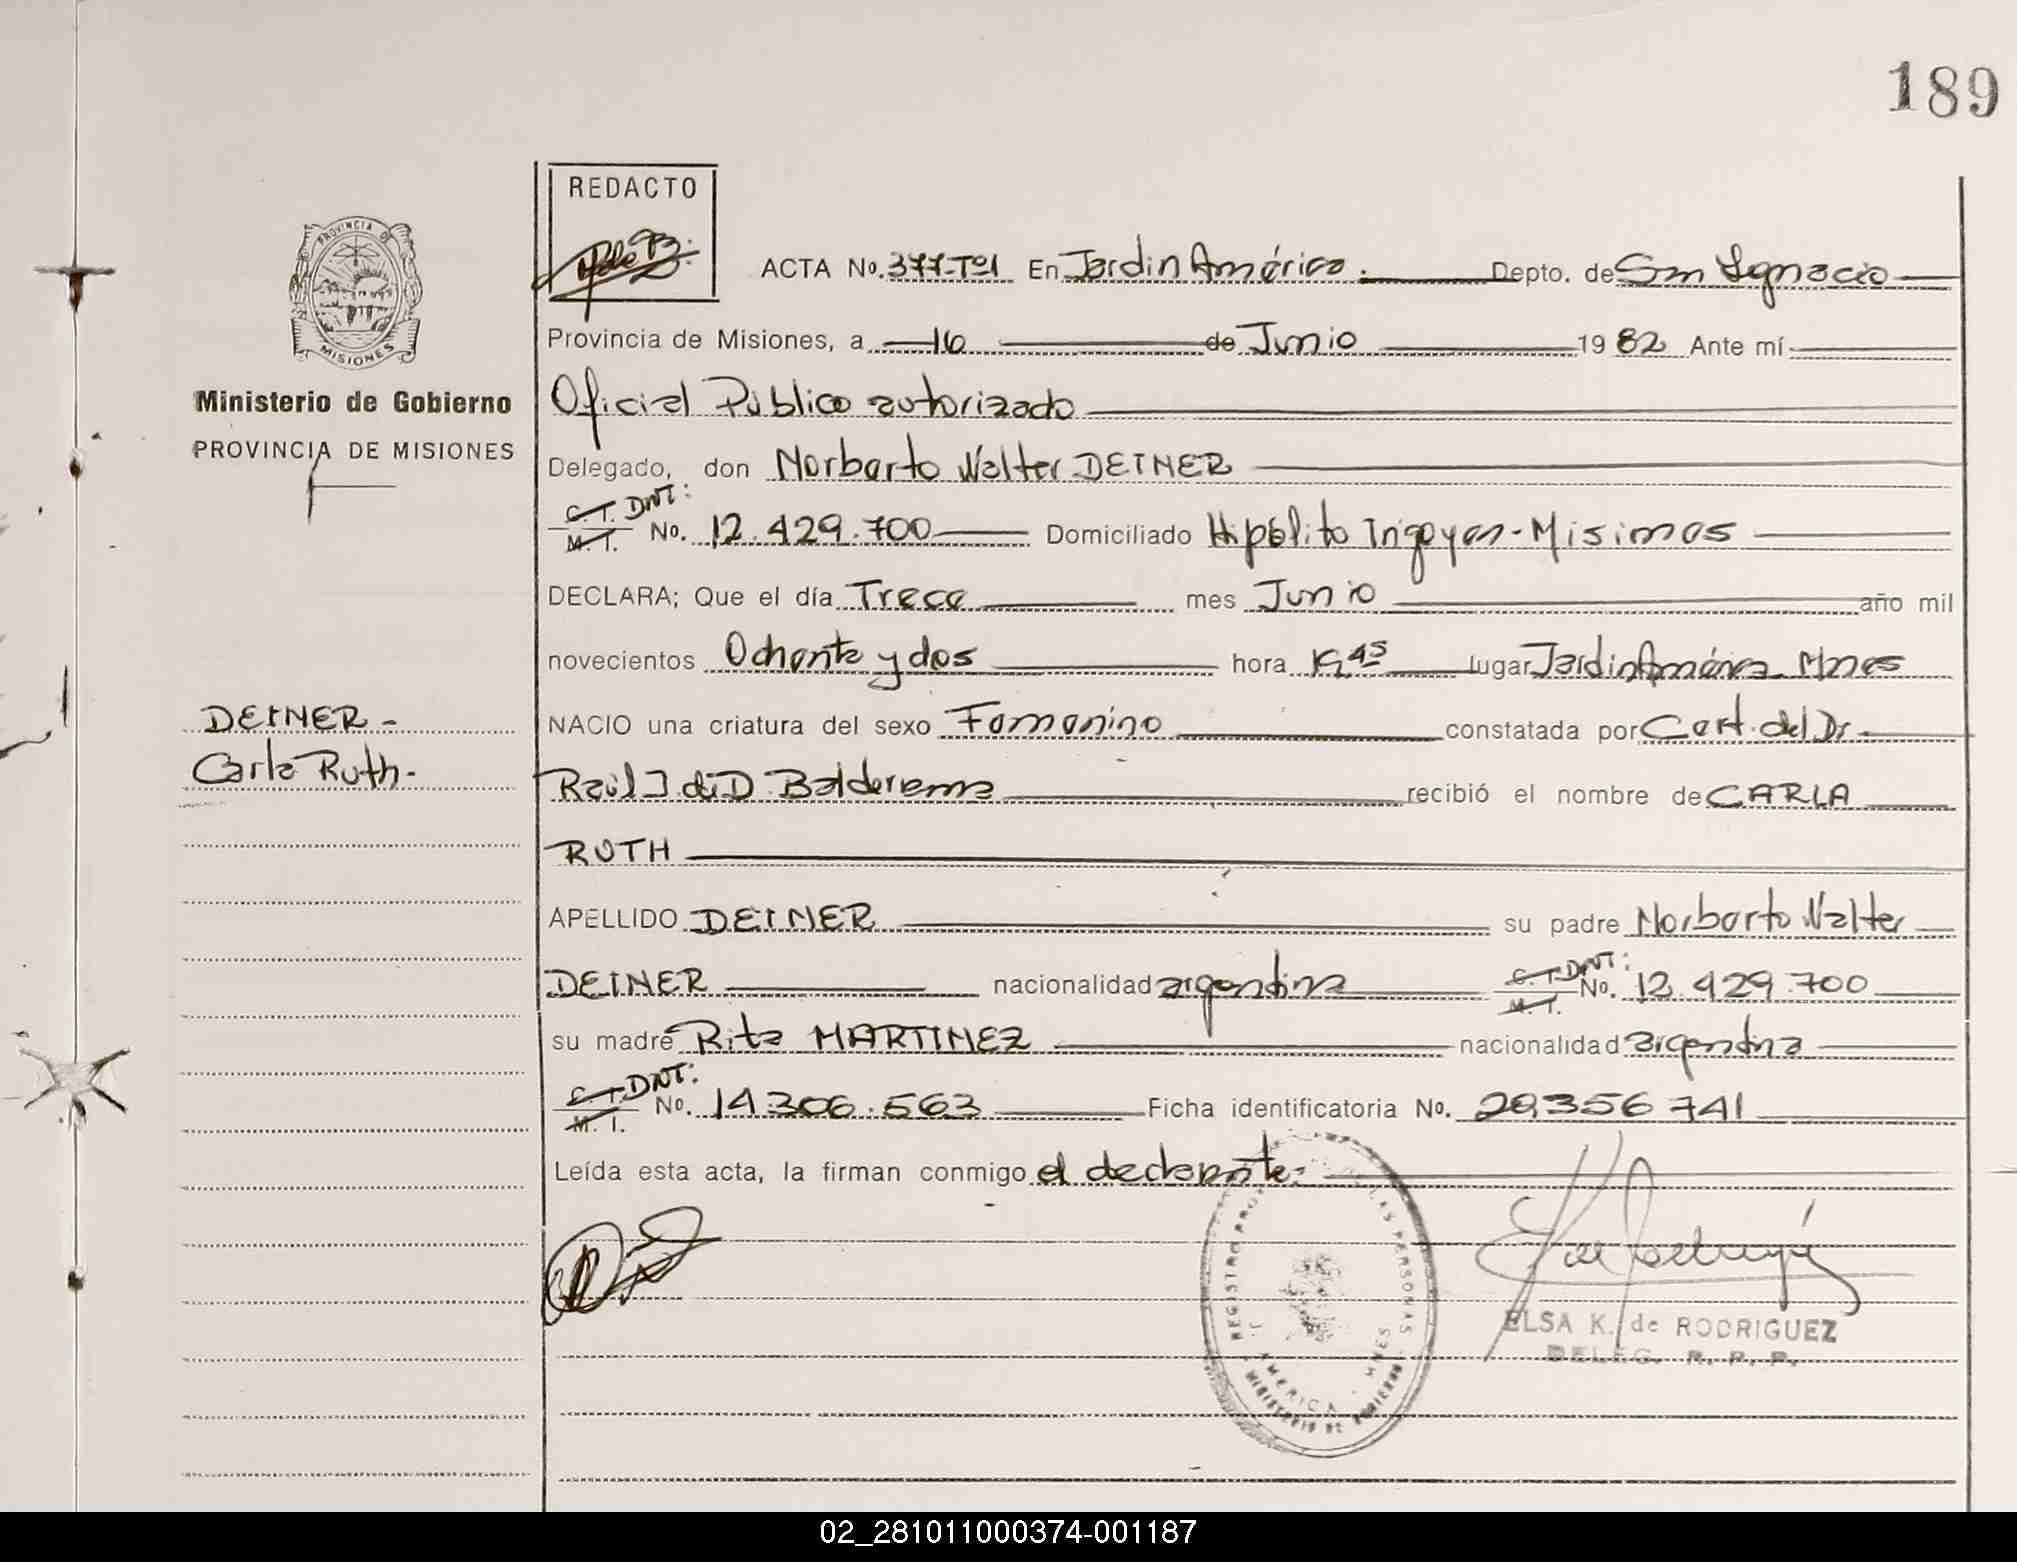 189
REDACTO
ACTA No. 377-Tº1 En Jardin América. Depto. de San Ignacio
PROVINCIA DE
MISIONES
Provincia de Misiones, a 16 de Junio 1982 Ante mí
Ministerio de Gobierno
PROVINCIA DE MISIONES
Oficial Público autorizado
Delegado, don Norberto Walter DEINER
C.I. DNI:
M. I. No. 12.429.700 Domiciliado Hipólito Irigoyen-Misiones
DECLARA; Que el día Trece mes Junio año mil
novecientos Ochenta y dos hora 19,45 lugar Jardin América Mnes
DEINER-
Carla Ruth-
NACIO una criatura del sexo Femenino constatada por Cert. del Dr
Raúl J. de D. Balderrama recibió el nombre de CARLA
RUTH
APELLIDO DEINER su padre Norberto Walter
DEINER nacionalidad argentina C.I. DNI: M. I. No. 12.429.700
su madre Rita MARTINEZ nacionalidad argentina
C.I. DNI:
M. I. No. 14.306.563 Ficha identificatoria No. 29.356.741
Leída esta acta, la firman conmigo el declarante.
REGISTRO LAS PERSONAS
AMERICA - MNES
MINISTERIO DE GOBIERNO
ELSA K. de RODRIGUEZ
DELEG. R. P. P.
02_281011000374-001187